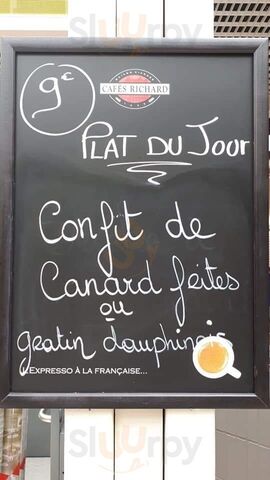 Sluurpy
9€
CAFÉS RICHARD
PLAT DU JOUR
Confit de
Canard frites
ou
gratin dauphinois
L'EXPRESSO À LA FRANÇAISE...
Sluurpy